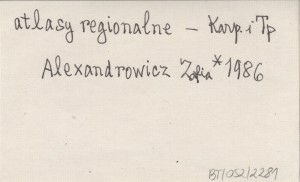 atlasy regionalne – Karp. i Tp
Alexandrowicz Zofia * 1986
BT/052/2281